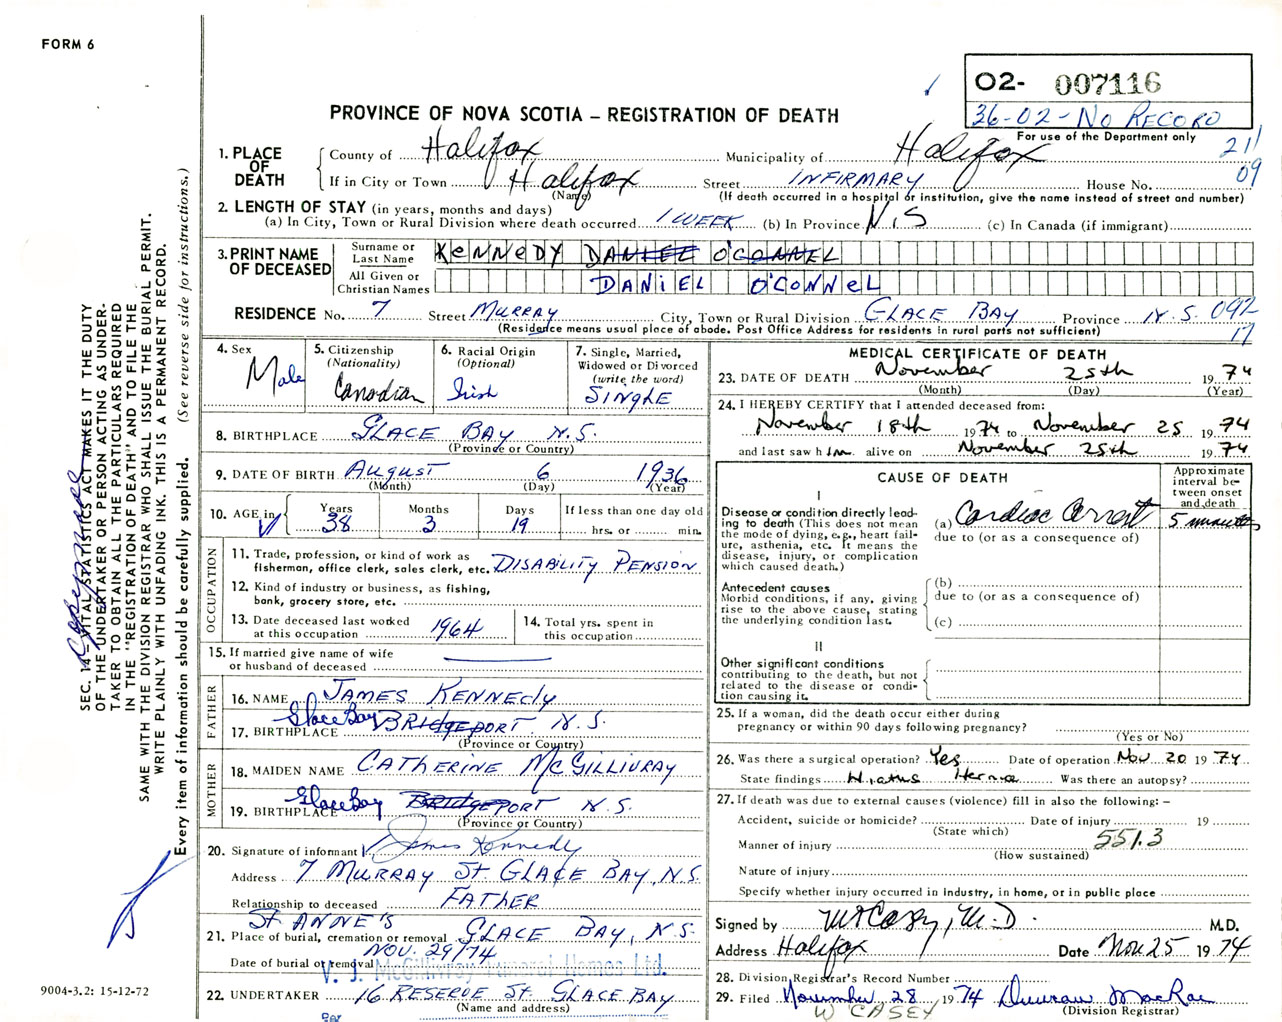 FORM 6
O2- 007116
36-02-NO RECORD
For use of the Department only
21
09
PROVINCE OF NOVA SCOTIA – REGISTRATION OF DEATH
1. PLACE OF DEATH
County of Halifax Municipality of Halifax
If in City or Town Halifax Street INFIRMARY House No.
(Name) (If death occurred in a hospital or institution, give the name instead of street and number)
2. LENGTH OF STAY (in years, months and days)
(a) In City, Town or Rural Division where death occurred 1 WEEK (b) In Province N.S (c) In Canada (if immigrant)
3. PRINT NAME OF DECEASED
Surname or Last Name KENNEDY DANIEL O'CONNEL
All Given or Christian Names DANIEL O'CONNEL
RESIDENCE No. 7 Street MURRAY City, Town or Rural Division GLACE BAY Province N.S. 092
17
(Residence means usual place of abode. Post Office Address for residents in rural parts not sufficient)
4. Sex Male
5. Citizenship (Nationality) Canadian
6. Racial Origin (Optional) Irish
7. Single, Married, Widowed or Divorced (write the word) SINGLE
8. BIRTHPLACE GLACE BAY N.S.
(Province or Country)
9. DATE OF BIRTH AUGUST 6 1936
(Month) (Day) (Year)
10. AGE in Years 38 Months 3 Days 19 If less than one day old hrs. or min.
OCCUPATION
11. Trade, profession, or kind of work as fisherman, office clerk, sales clerk, etc. DISABILITY PENSION
12. Kind of industry or business, as fishing, bank, grocery store, etc.
13. Date deceased last worked at this occupation 1964
14. Total yrs. spent in this occupation
15. If married give name of wife or husband of deceased
FATHER
16. NAME JAMES KENNEDY
17. BIRTHPLACE Glace Bay BRIDGEPORT N.S.
(Province or Country)
MOTHER
18. MAIDEN NAME CATHERINE McGILLIVRAY
19. BIRTHPLACE Glace Bay BRIDGEPORT N.S.
(Province or Country)
20. Signature of informant James Kennedy
Address 7 MURRAY St GLACE BAY, N.S.
Relationship to deceased FATHER
21. Place of burial, cremation or removal St ANNE'S GLACE BAY, N.S.
Date of burial or removal NOV. 29/74
V. J. McGillivray Funeral Homes Ltd.
22. UNDERTAKER 16 RESERVE St. GLACE BAY
(Name and address)
Per
MEDICAL CERTIFICATE OF DEATH
23. DATE OF DEATH November 25th 1974
(Month) (Day) (Year)
24. I HEREBY CERTIFY that I attended deceased from:
November 18th 1974 to November 25 1974
and last saw him alive on November 25th 1974
CAUSE OF DEATH
Approximate interval between onset and death
I
Disease or condition directly leading to death (This does not mean the mode of dying, e.g., heart failure, asthenia, etc. It means the disease, injury, or complication which caused death.)
(a) Cardiac arrest 5 minutes
due to (or as a consequence of)
Antecedent causes
Morbid conditions, if any, giving rise to the above cause, stating the underlying condition last.
(b)
due to (or as a consequence of)
(c)
II
Other significant conditions contributing to the death, but not related to the disease or condition causing it.
25. If a woman, did the death occur either during pregnancy or within 90 days following pregnancy?
(Yes or No)
26. Was there a surgical operation? Yes Date of operation Nov 20 1974
State findings Hiatus Hernia Was there an autopsy?
27. If death was due to external causes (violence) fill in also the following: –
Accident, suicide or homicide? Date of injury 19
(State which)
Manner of injury 551.3
(How sustained)
Nature of injury
Specify whether injury occurred in industry, in home, or in public place
Signed by W Casey, M.D. M.D.
Address Halifax Date Nov 25 1974
28. Division Registrar's Record Number
29. Filed November 28 1974 Duncan MacRae
(Division Registrar)
W CASEY
SEC. 14 – VITAL STATISTICS ACT MAKES IT THE DUTY
OF THE UNDERTAKER OR PERSON ACTING AS UNDER-
TAKER TO OBTAIN ALL THE PARTICULARS REQUIRED
IN THE "REGISTRATION OF DEATH" AND TO FILE THE
SAME WITH THE DIVISION REGISTRAR WHO SHALL ISSUE THE BURIAL PERMIT.
WRITE PLAINLY WITH UNFADING INK. THIS IS A PERMANENT RECORD.
Every item of information should be carefully supplied. (See reverse side for instructions.)
9004-3.2: 15-12-72